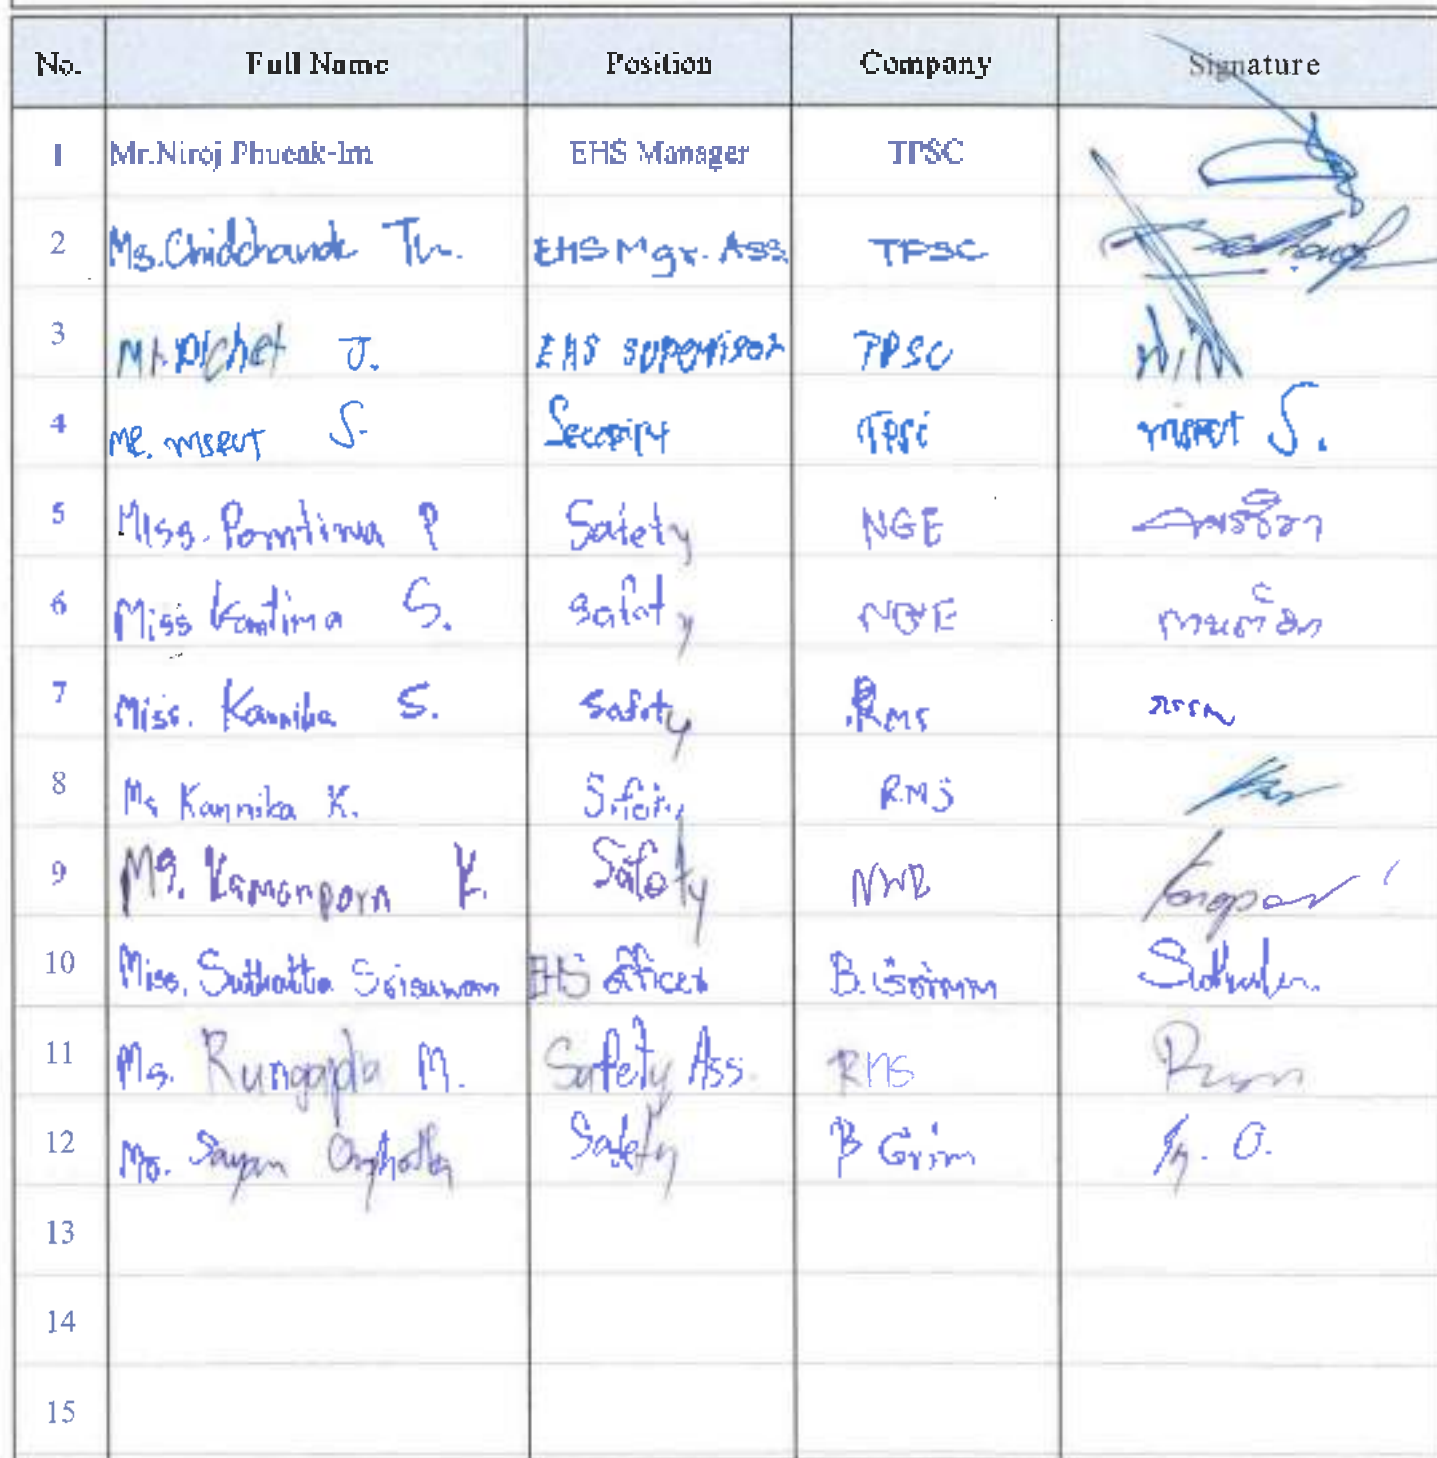 No. Full Name Position Company Signature
1 Mr.Niroj Phueak-Im EHS Manager TPSC
2 Ms.Chidchanok Th. EHS Mgr. Ass. TPSC
3 Mr. Pichet J. EHS supervisor TPSC
4 Mr. S. TPSC S.
5 Miss. Porntiwa P Safety NGE พรธิวา
6 Miss Kantima S. Safety NGE กานต์ธิมา
7 Miss. Kannika S. Safety RMS
8 Ms Kannika K. Safety RMS
9 Ms. Kamonporn K. Safety
10 Miss. Suthatta Srisuwan EHS officer B.Grimm
11 Ms. M. Safety Ass. RMS
12 Sayan Safety B Grim O.
13
14
15